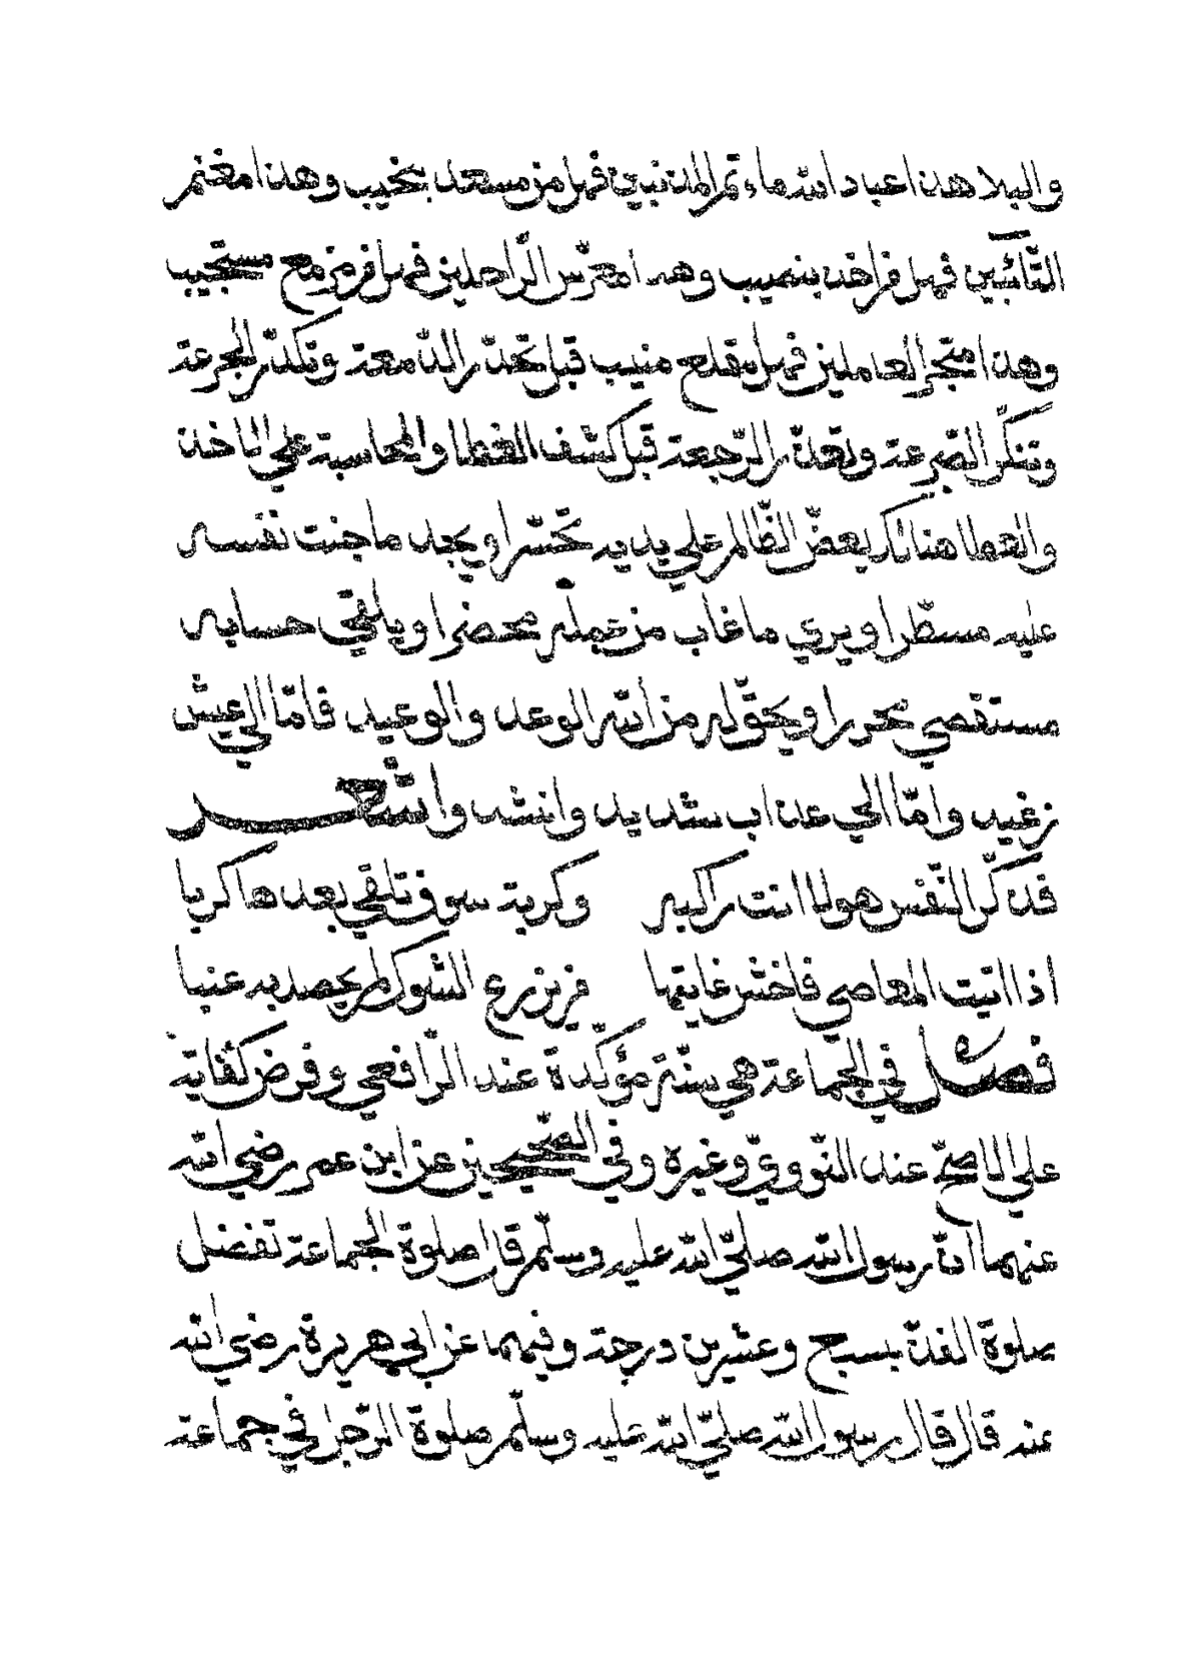 والبلا هذا عباد الله مأتم المذنبين فهل من مسعد بنحيب وهذا مغنم
التّآئبين فهل فراخذ بنصيب وهذا معرّس الرّاحلين فهل فر مزمع مستجيب
وهذا متجر العاملين فهل مقلع منيب قبل تحدّر الدّمعة وتكدّر الجرعة
وتنكّر الصرعة وتعذّر الرّجعة قبل كشف الغطا والمحاسبة علي الاخذ
والعطا هنالك يعضّ الظّالم علي يديه تحسّرا ويجد ما جنت نفسه
عليه مسطّرا ويري ما غاب من عمله محضرا ويلقي حسابه
مستقصي محررا ويحقّ له من الله الوعد والوعيد فامّا الي عيش
رغيد وامّا الي عذاب شديد وانشدوا شعر
فذكّر النّفس هولا انت راكبه وكربة سوف تلقي بعدها كربا
اذا اتيت المعاصي فاخش غايتها من يزرع الشوك لم يحصد به عنبا
فصل في الجّماعة هي سنّة مؤكّدة عند الرّافعي وفرض كفاية
علي الاصحّ عند النّوويّ وغيره وفي الصّحيحين عن ابن عمر رضي الله
عنهما انّ رسول الله صلّي الله عليه وسلّم قال صلوة الجماعة تفضل
صلوة الفذّ بسبع وعشرين درجة وفيهما عن ابي هريرة رضي الله
عنه قال قال رسول الله صلّي الله عليه وسلّم صلوة الرّجل في جماعة